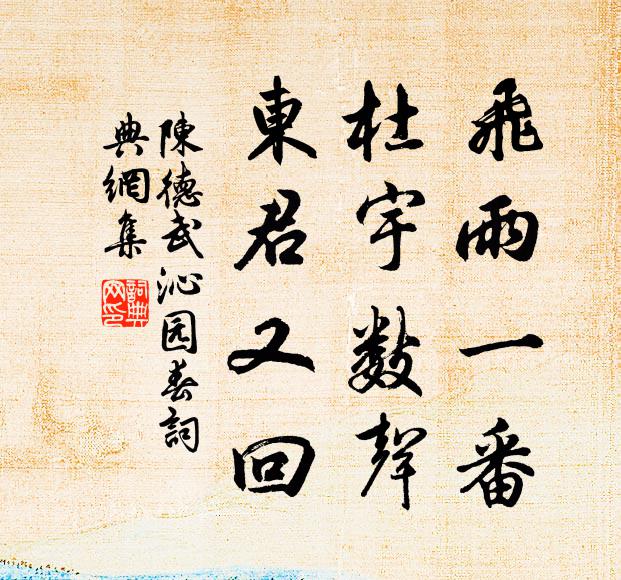 飛雨一番
杜宇數聲
東君又回
陳德武沁园春詞
典網集
詞典
网印